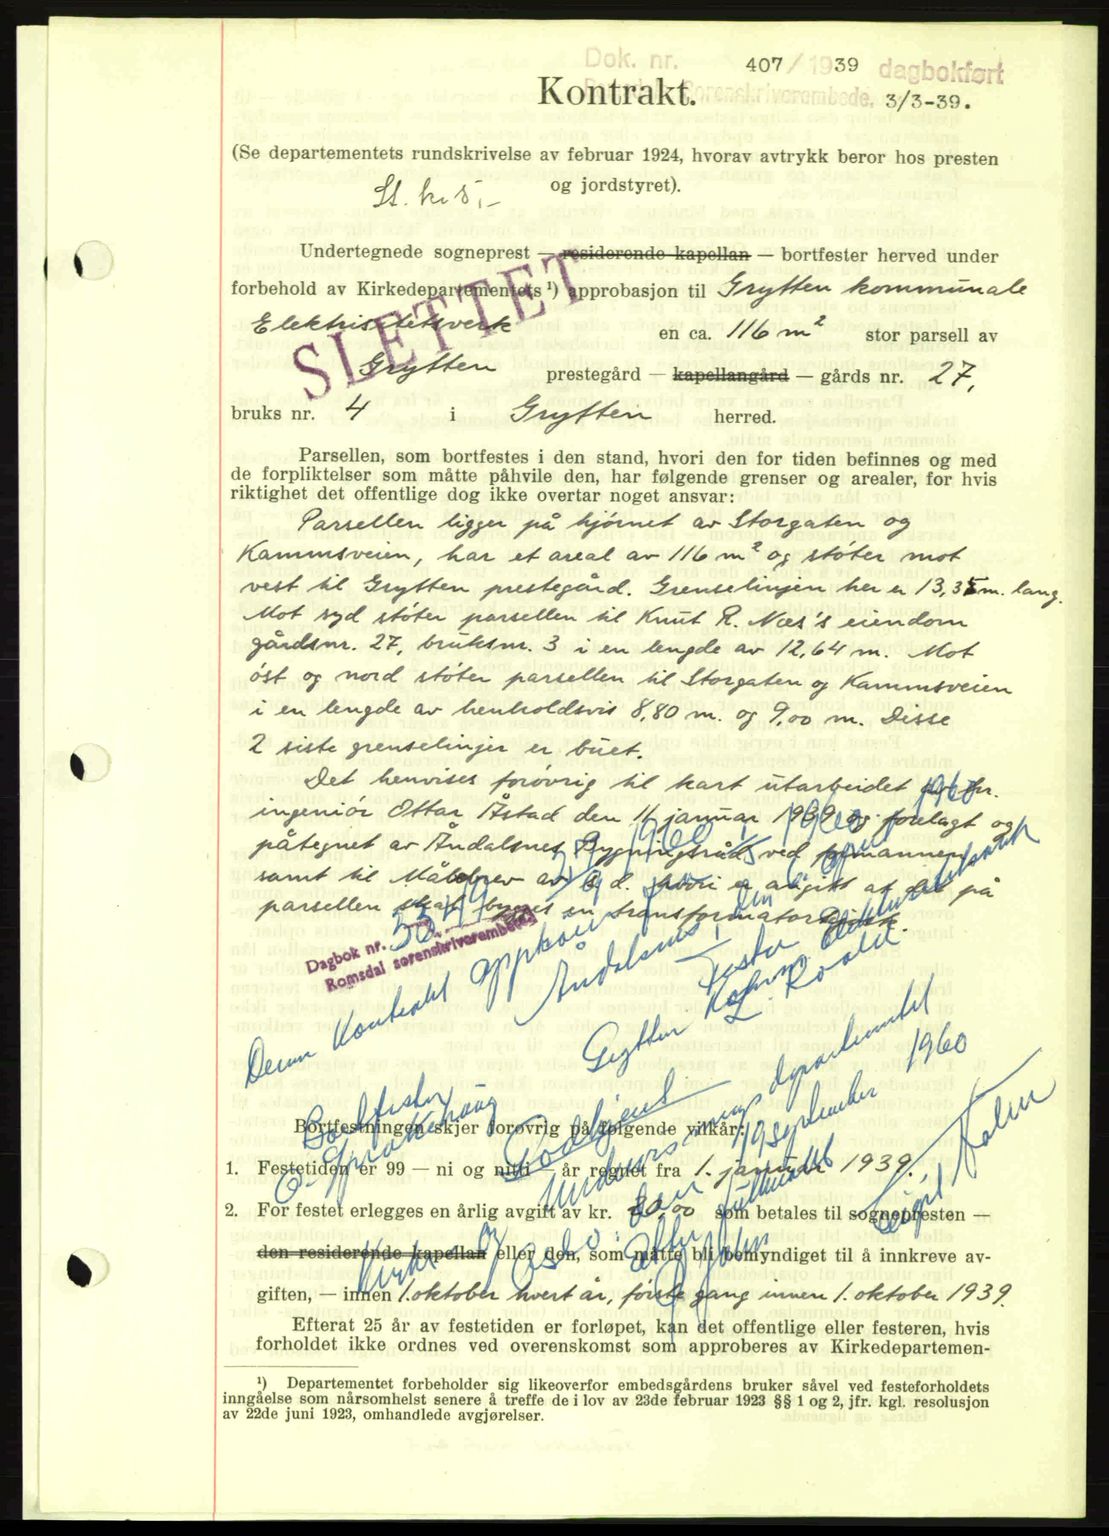 Dok. nr. 407/1939 dagbokført
Kontrakt.
Sorenskriverembede. 3/3-39.
(Se departementets rundskrivelse av februar 1924, hvorav avtrykk beror hos presten
og jordstyret).
St. kr 5,-
Undertegnede sogneprest — residerende kapellan — bortfester herved under
forbehold av Kirkedepartementets ¹) approbasjon til Grytten kommunale
Elektrisitetsverk en ca. 116 m² stor parsell av
SLETTET
Grytten prestegård — kapellangård — gårds nr. 27,
bruks nr. 4 i Grytten herred.
Parsellen, som bortfestes i den stand, hvori den for tiden befinnes og med
de forpliktelser som måtte påhvile den, har følgende grenser og arealer, for hvis
riktighet det offentlige dog ikke overtar noget ansvar:
Parsellen ligger på hjørnet av Storgaten og
Kammsveien, har et areal av 116 m² og støter mot
vest til Grytten prestegård. Grenselinjen her er 13,35 m. lang.
Mot syd støter parsellen til Knut R. Næs's eiendom
gårdsnr. 27, bruksnr. 3 i en lengde av 12,64 m. Mot
øst og nord støter parsellen til Storgaten og Kammsveien
i en lengde av henholdsvis 8,80 m. og 9,00 m. Disse
2 siste grenselinjer er buet.
Det henvises forøvrig til kart utarbeidet av hr.
ingeniør Ottar Åstad den 11 januar 1939 og forelagt og
påtegnet av Åndalsnes Bygningsråd ved formannen
samt til Målebrev av s. d. hvori er avgitt at det på
parsellen skal bygges en transformator
Dagbok nr. 3349
Romsdal sorenskriverembete
Denne Kontrakt opphører
1960
Åndalsnes, den
1960
Grytten Komm. Elektrisitetsverk
L. Roald
Bortfester
Godkjent
departementet
19 september 1960
Bortfestningen skjer forøvrig på følgende vilkår:
1. Festetiden er 99 — ni og nitti — år regnet fra 1. januar 1939.
2. For festet erlegges en årlig avgift av kr. 20,00 som betales til sognepresten —
den residerende kapellan eller den, som måtte bli bemyndiget til å innkreve av-
giften, — innen 1. oktober hvert år, første gang innen 1. oktober 1939.
Kirke- og
Oslo
Efter fullmakt
Efterat 25 år av festetiden er forløpet, kan det offentlige eller festeren, hvis
forholdet ikke ordnes ved overenskomst som approberes av Kirkedepartemen-
¹) Departementet forbeholder sig likeoverfor embedsgårdens bruker såvel ved festeforholdets
inngåelse som nårsomhelst senere å treffe de i lov av 23de februar 1923 §§ 1 og 2, jfr. kgl. resolusjon
av 22de juni 1923, omhandlede avgjørelser.